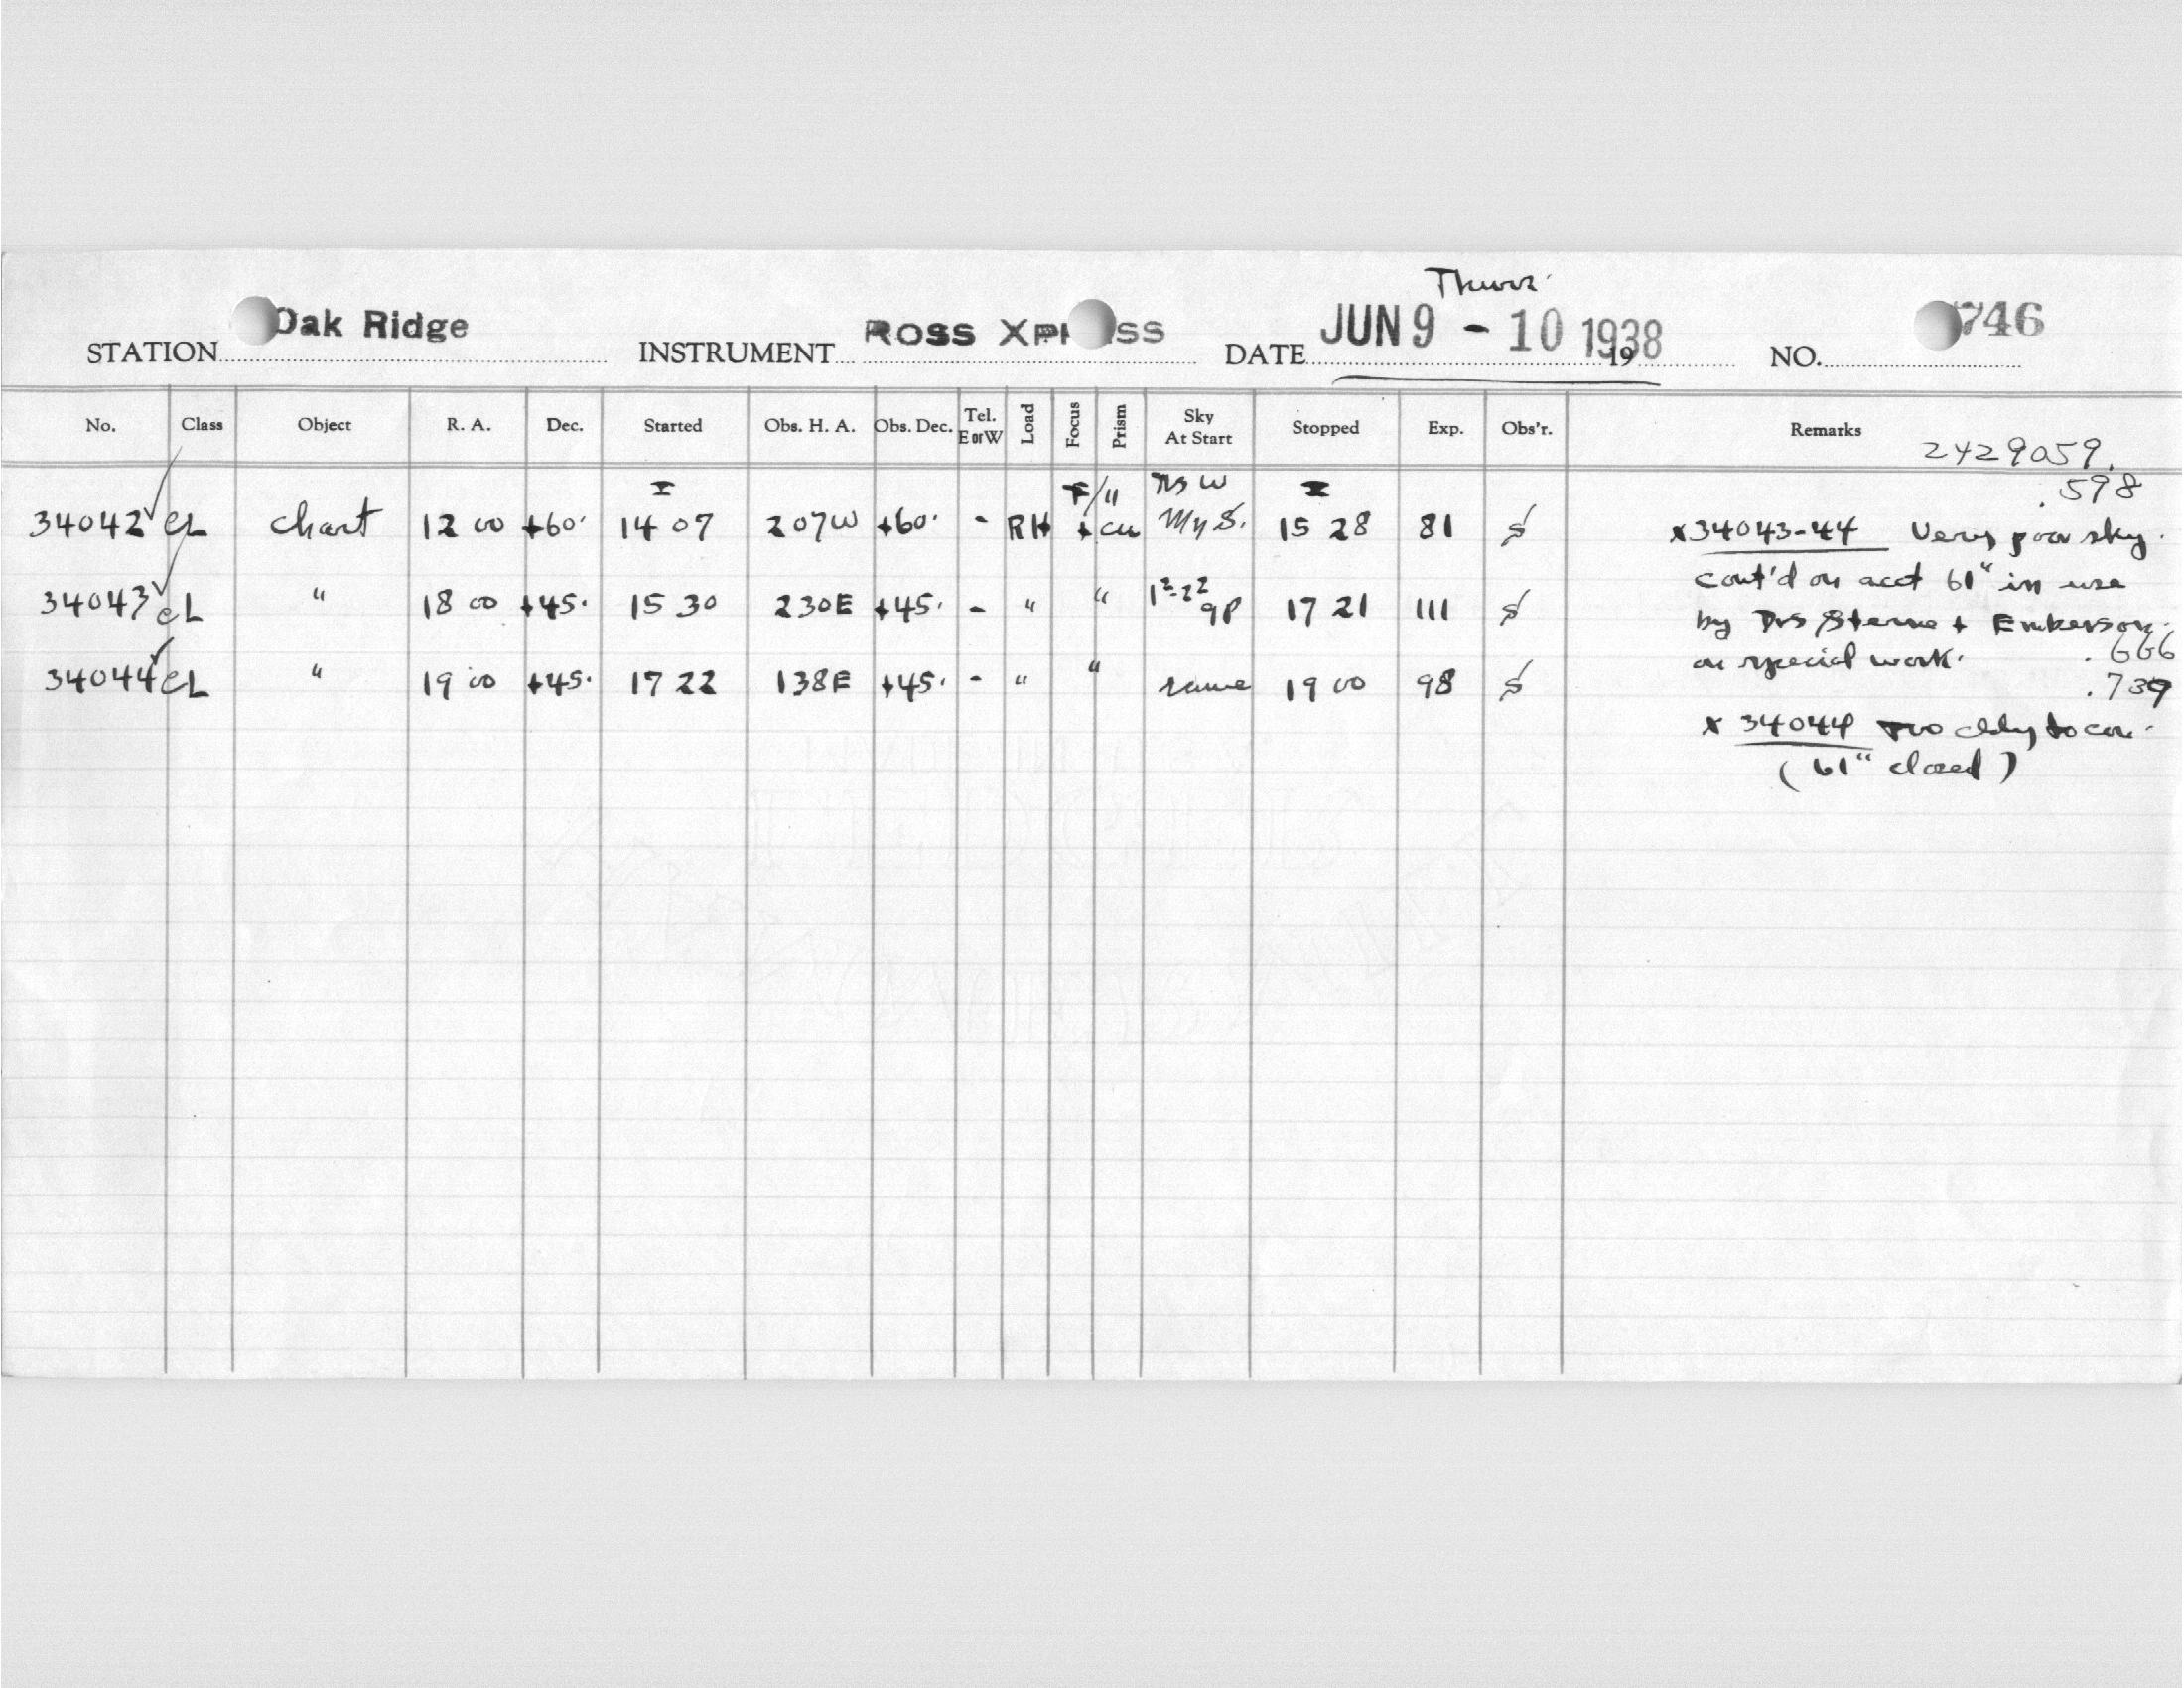 Thurs.
STATION Oak Ridge INSTRUMENT ROSS XPRESS DATE JUN 9 - 10 1938 19 NO. 746
No. Class Object R. A. Dec. Started Obs. H. A. Obs. Dec. Tel. E or W Load Focus Prism Sky At Start Stopped Exp. Obs'r. Remarks
2429059.
.598
34042 CL chart 12 00 +60· 14 07 207W +60· - RH 15 28 81 x34043-44 Very poor sky.
cont'd on acct 61" in use
34043 CL " 18 00 +45· 15 30 230E +45· - " " 17 21 111
by Drs Sterne + Emberson
on special work. .666
34044 CL " 19 00 +45· 17 22 138E +45· - " " same 19 00 98
.739
x 34044 Too cldy to con.
(61" closed)